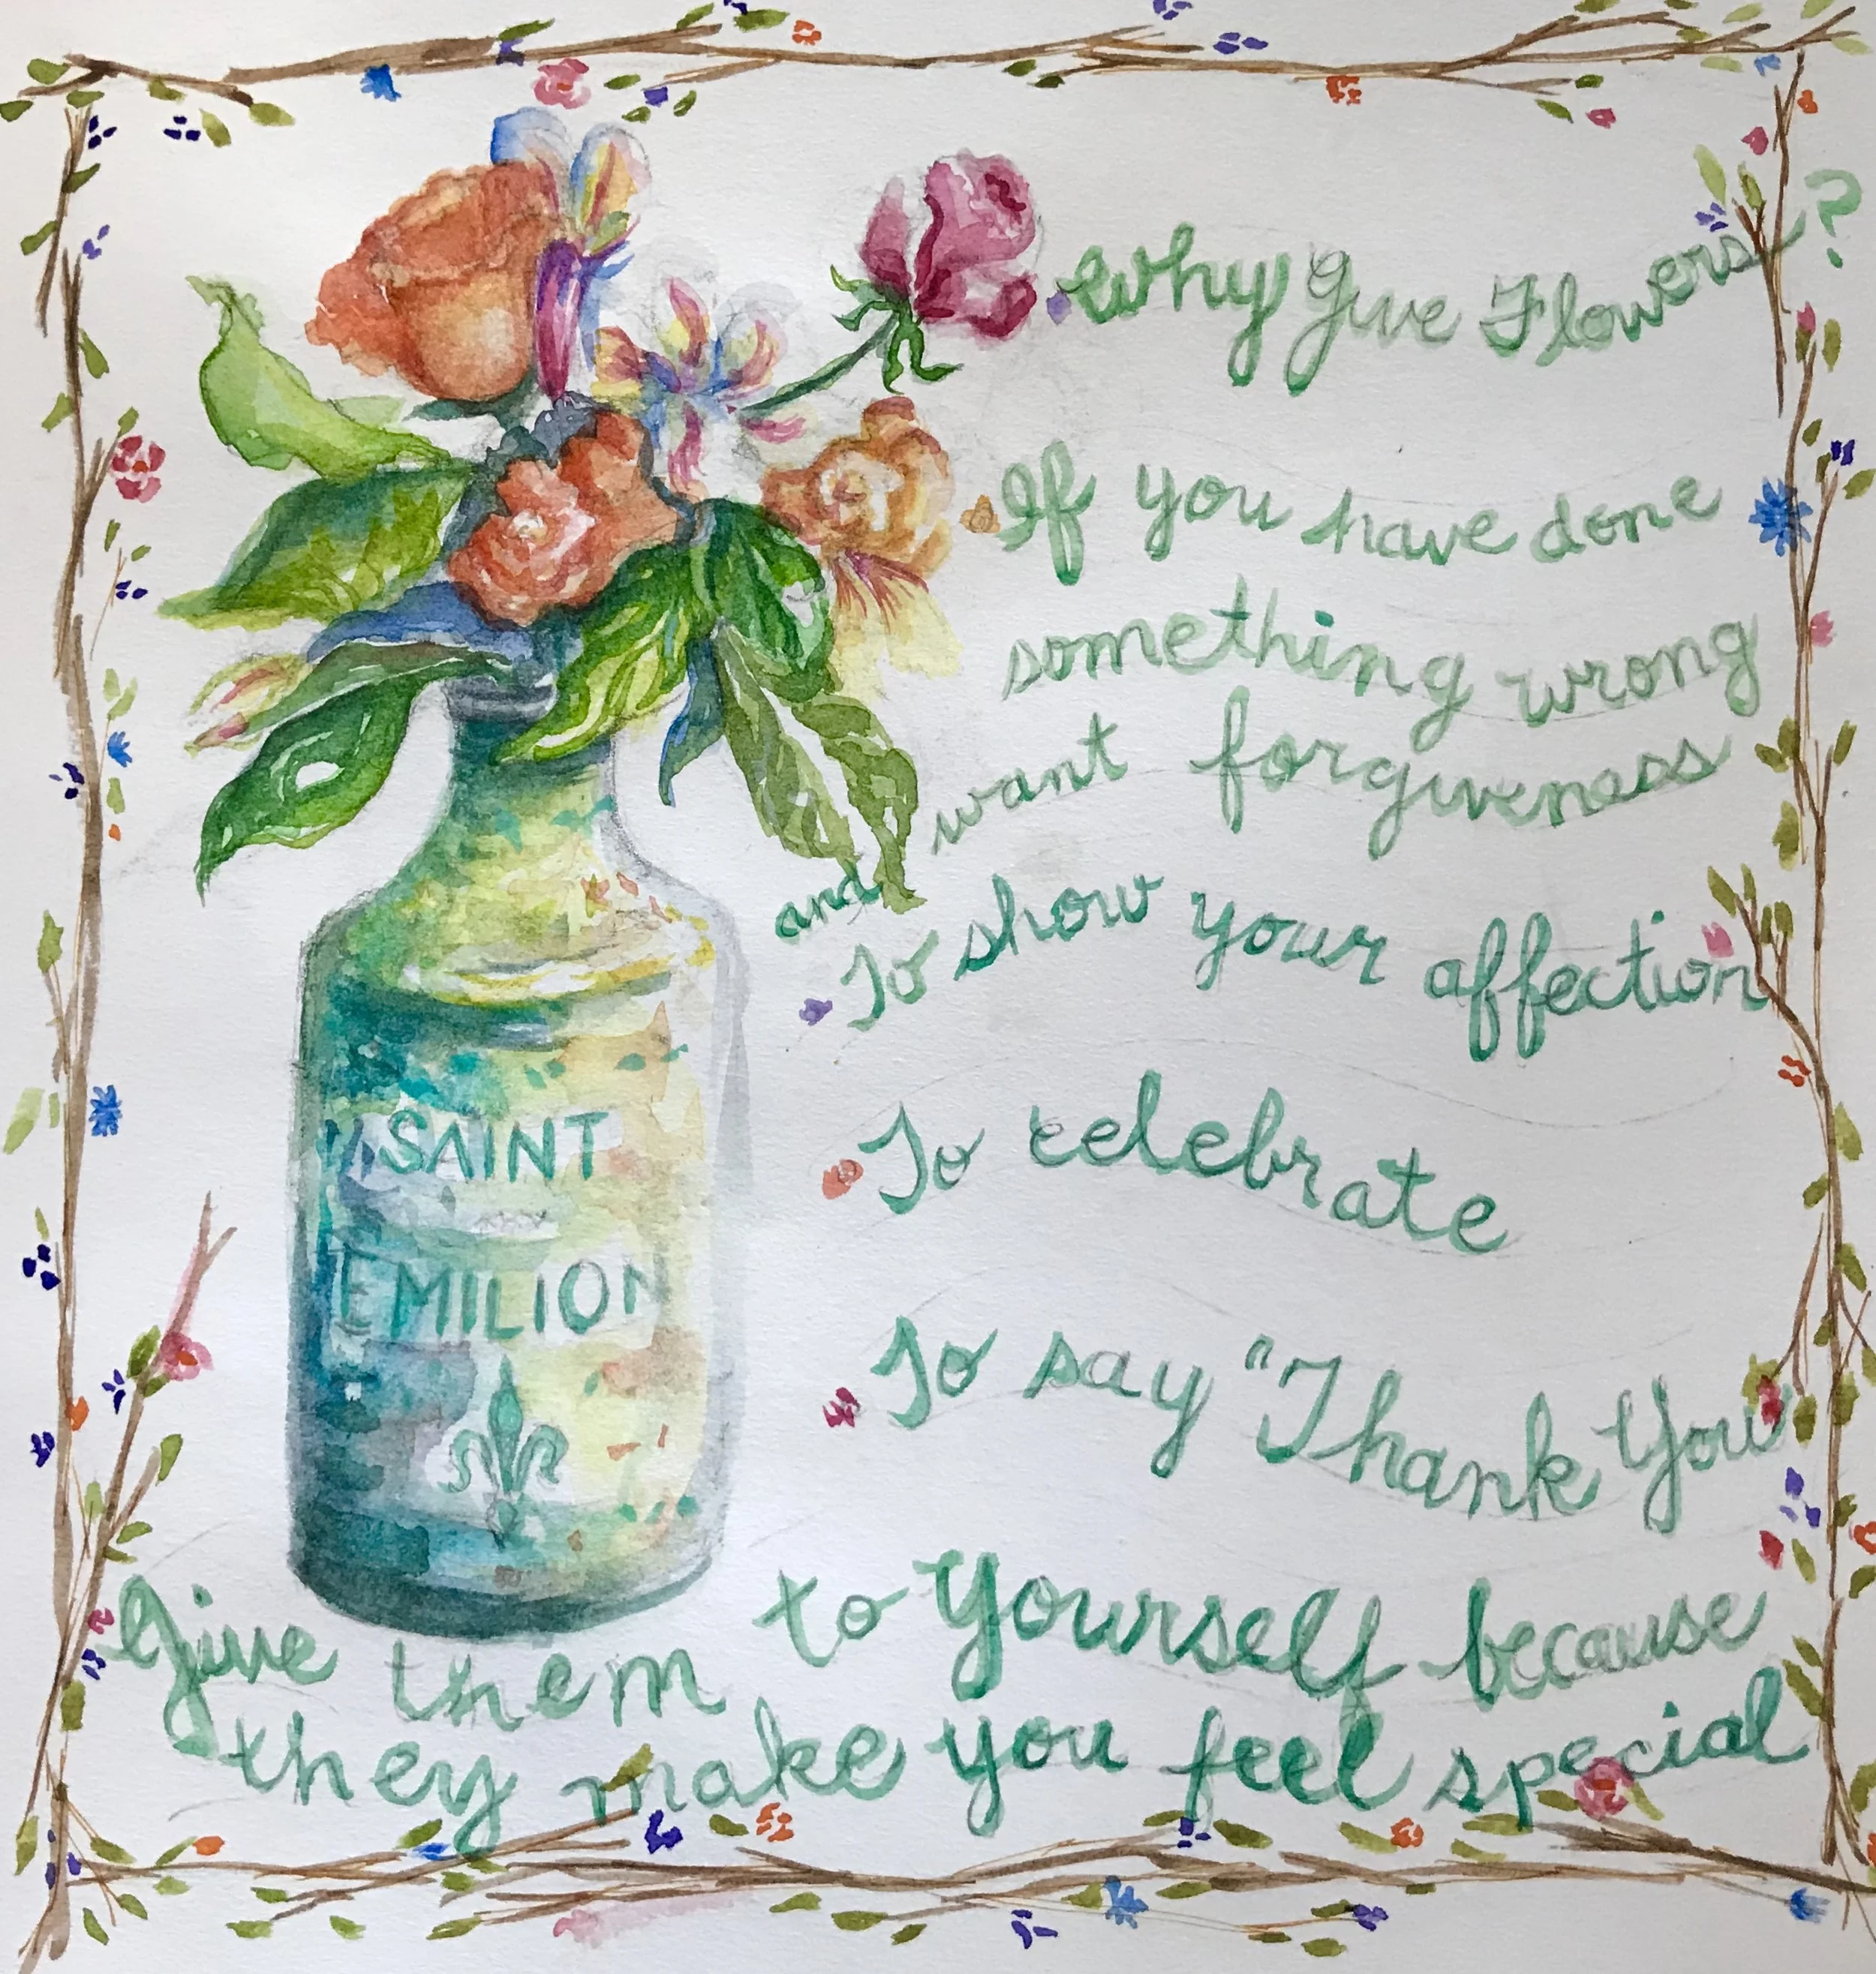 Why Give Flowers?
If you have done
something wrong
and want forgiveness
To show your affection
To celebrate
To say "Thank You"
Give them to yourself because
they make you feel special
SAINT
EMILION